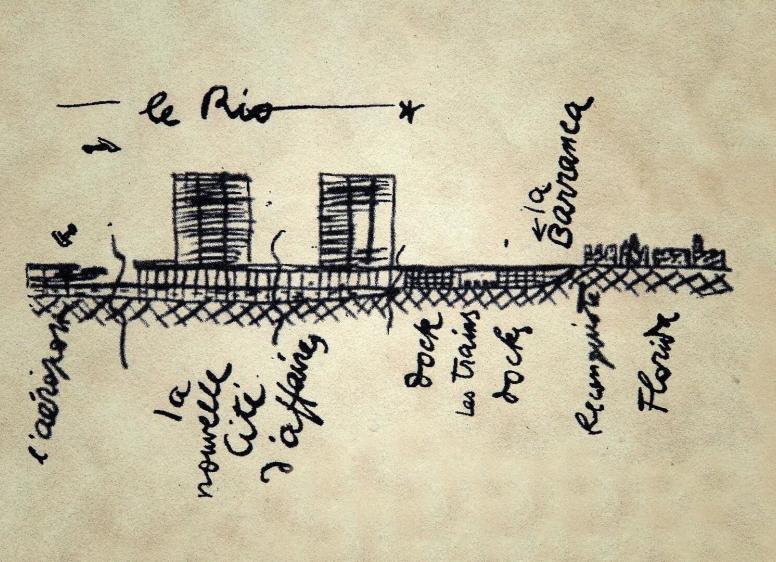 le Rio
← la
Barranca
l'aéroport
la
nouvelle
Cité
d'affaires
dock
Les trains
docks
Reconquista
Florida